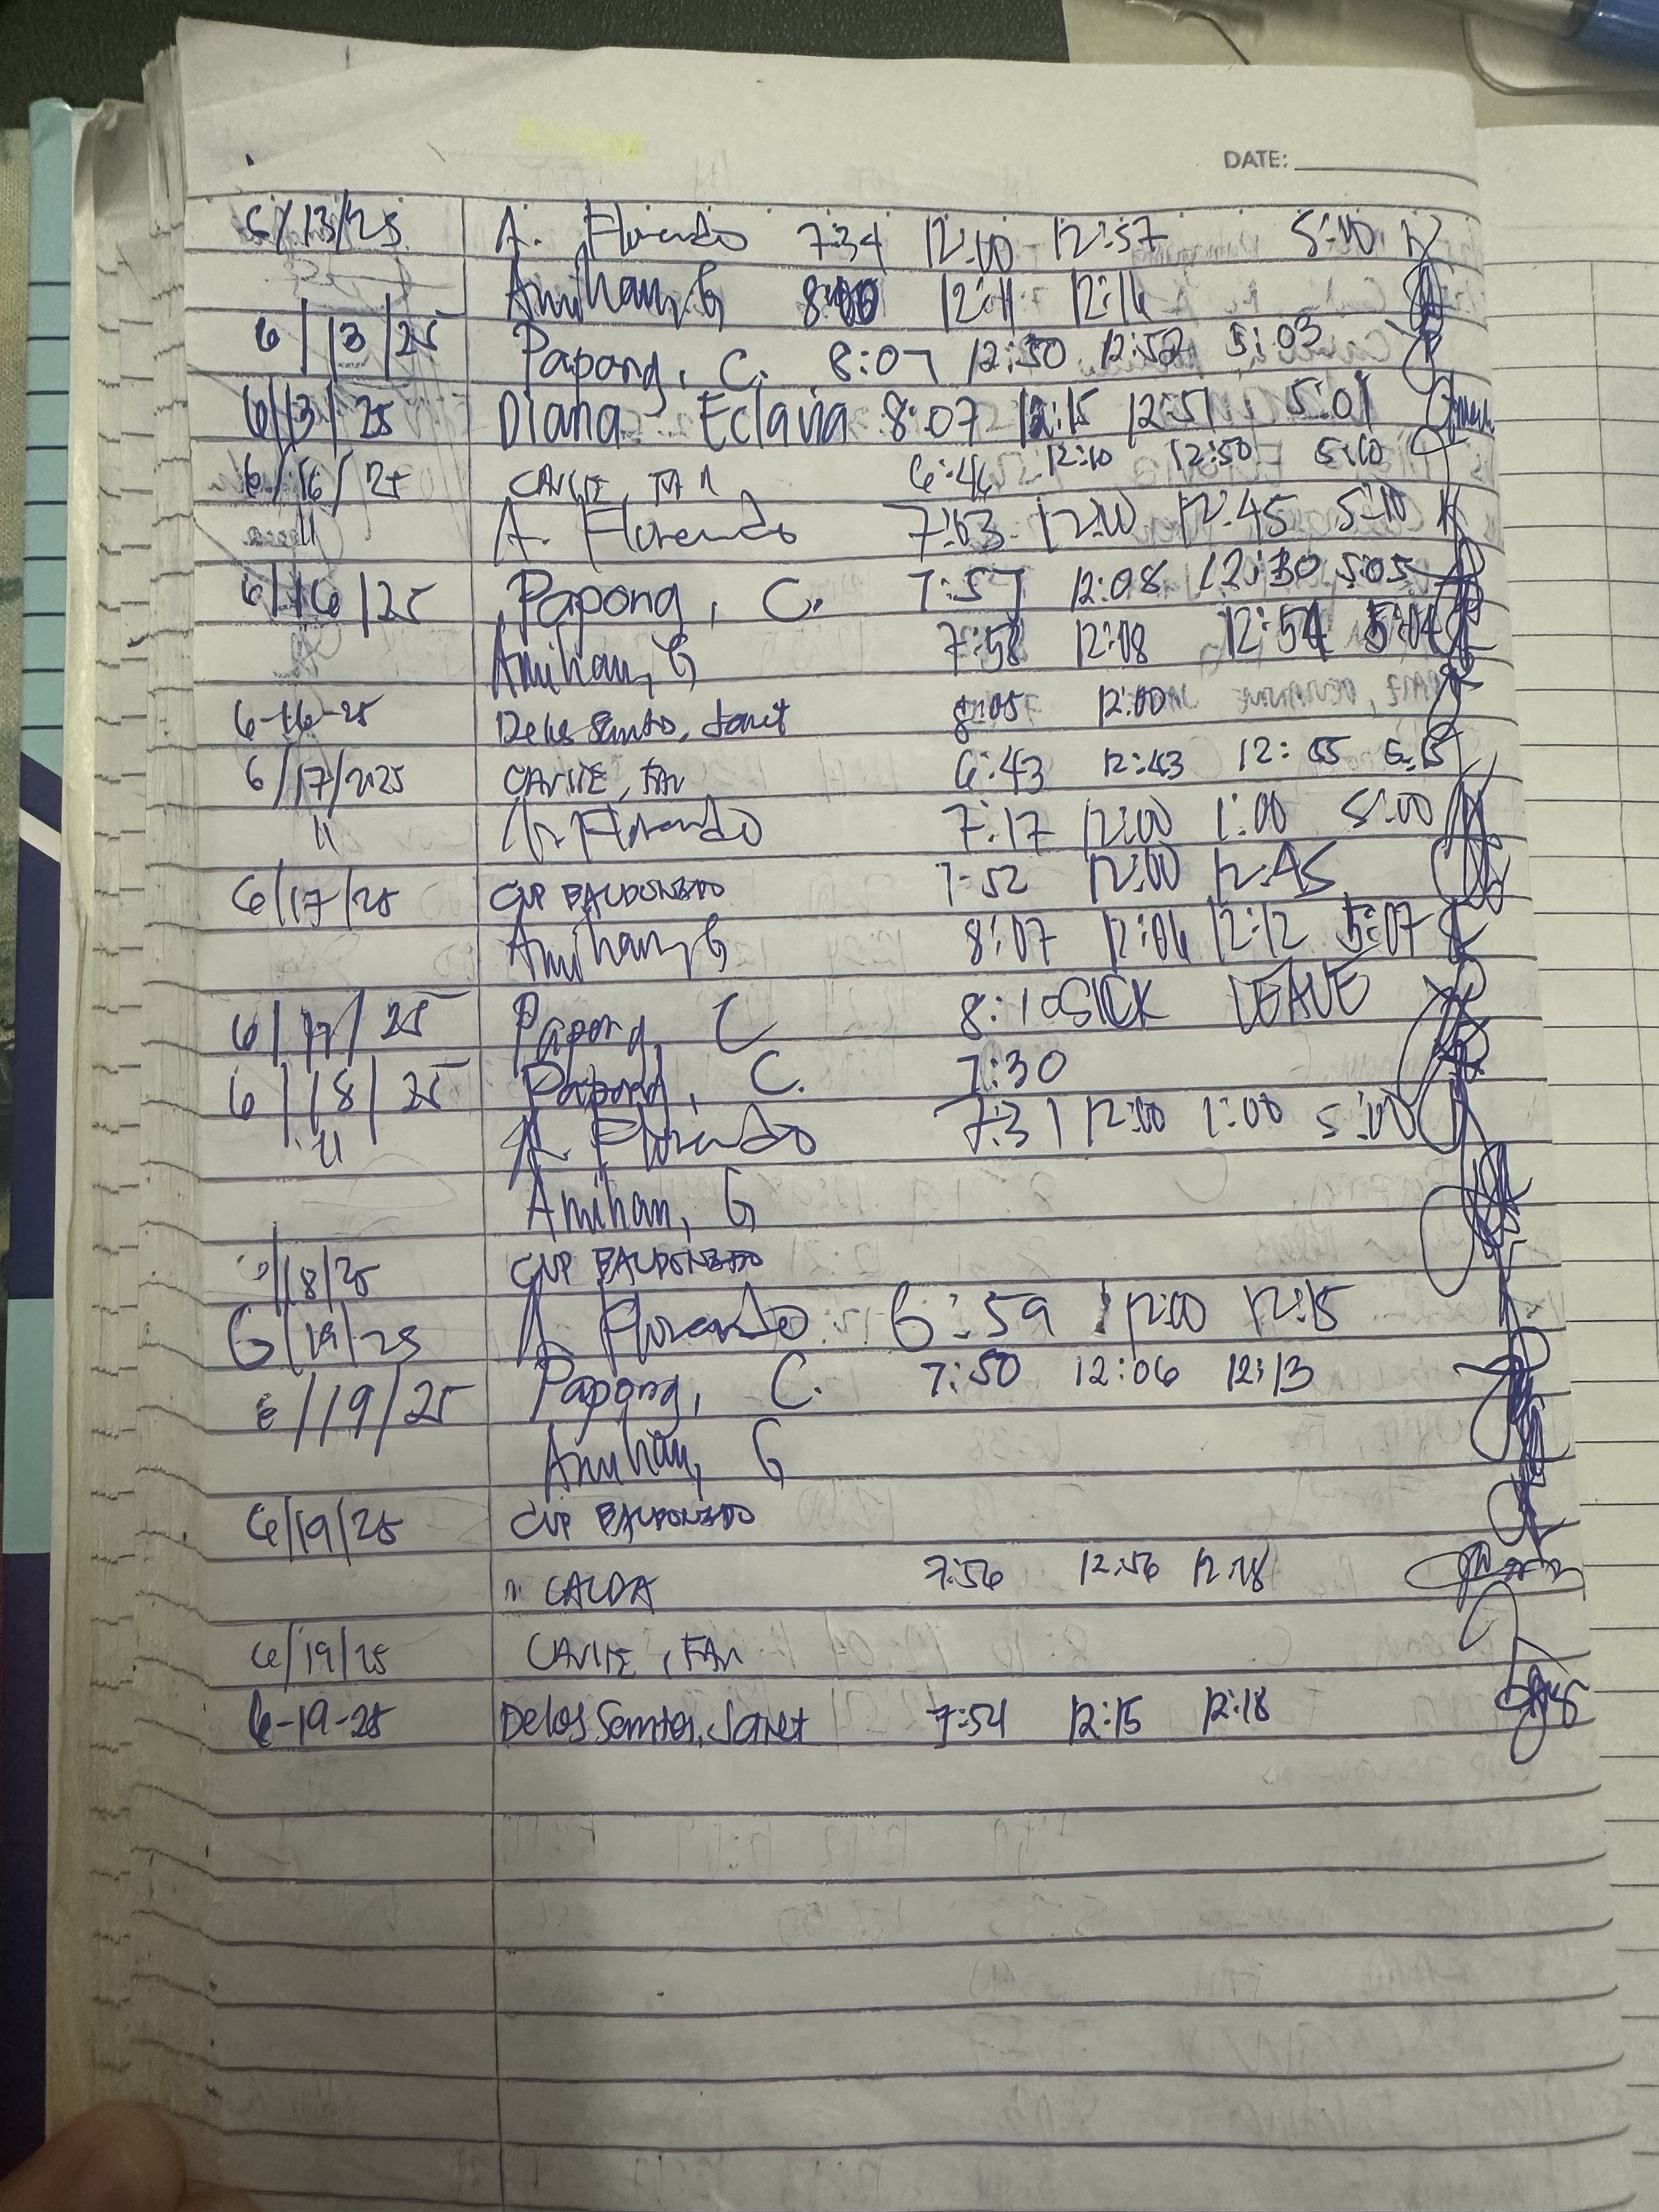 DATE:
6/13/25 A. Florendo 7:34 12:00 12:57 5:00
Amihan, G 8:00 12:11 12:16
6/13/25 Papong, C. 8:07 12:50 12:52 5:03
6/13/25 Diana Eclavia 8:07 12:15 12:51 5:01
6/16/25 6:46 12:10 12:50 5:10
11 A. Florendo 7:03 12:00 12:45 5:10
6/16/25 Papong, C. 7:57 12:08 12:30 5:05
Amihan, G 7:58 12:08 12:54 5:04
6-16-25 Delos Santos, Janet 8:05 12:00
6/17/2025 6:43 12:43 12:55 5:15
11 A. Florendo 7:17 12:00 1:00 5:00
6/17/25 7:52 12:00 12:45
Amihan, G 8:07 12:06 12:12 5:07
6/17/25 Papong, C 8:10 SICK LEAVE
6/18/25 Papong, C. 7:30
11 A. Florendo 7:31 12:00 1:00 5:00
Amihan, G
/18/25
6/19/25 A. Florendo 6:59 12:00 12:15
6/19/25 Papong, C. 7:50 12:06 12:13
Amihan, G
6/19/25
CALDA 7:56 12:56
6/19/25
6-19-25 Delos Santos, Janet 7:54 12:15 12:18